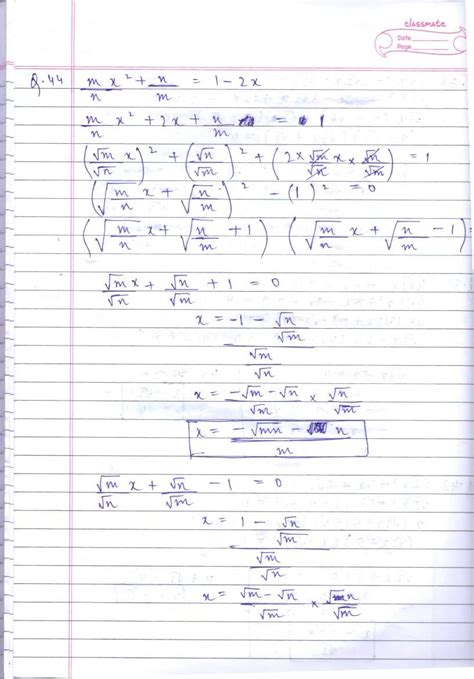 classmate
Date
Page
Q.44 m/n x² + n/m = 1 - 2x
m/n x² + 2x + n/m = 1
(√m/√n x)² + (√n/√m)² + (2 × √m/√n x × √n/√m) = 1
(√(m/n) x + √(n/m))² - (1)² = 0
(√(m/n) x + √(n/m) + 1) (√(m/n) x + √(n/m) - 1) =
√m x/√n + √n/√m + 1 = 0
x = -1 - √n/√m
√m/√n
x = -√m - √n/√m × √n/√m
x = -√mn - n/m
√m/√n x + √n/√m - 1 = 0
x = 1 - √n/√m
√m/√n
x = √m - √n/√m ×